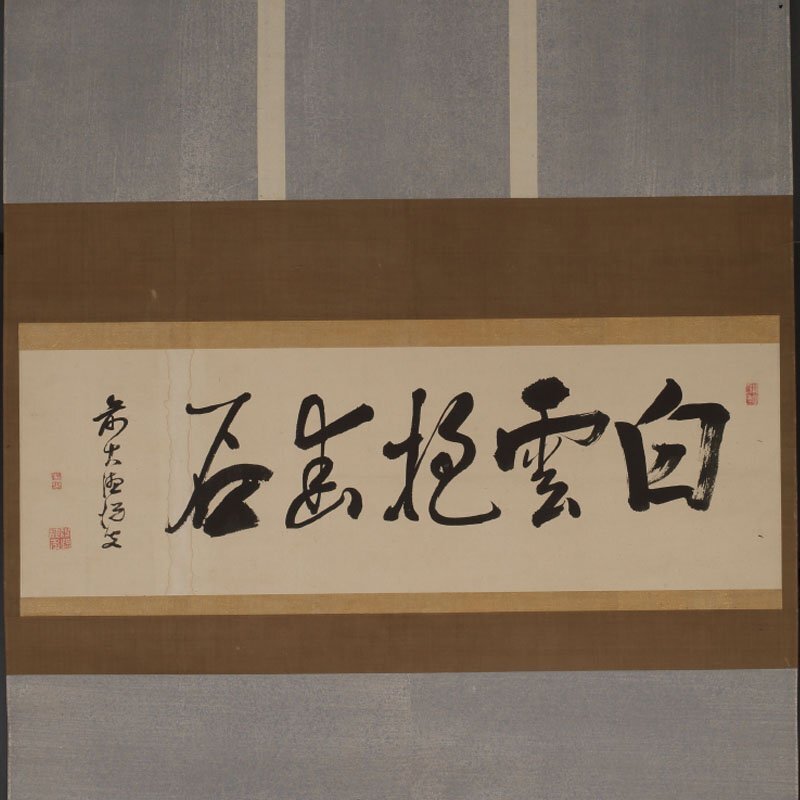 白雲抱幽石
前大徳